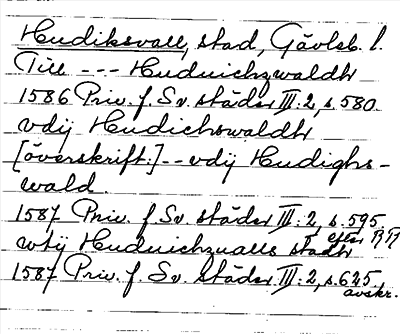 Hudiksvall, stad, Gävleb. l.
Till --- Huduichzwaldh
1586 Priv. f. Sv. städer III:2, s. 580.
vdij Hudichswaldh
[överskrift:] -- vdij Hudighs-
wald.
1587 Priv. f. Sv. städer III:2, s. 595.
efter RR
wtij Huduichzualls stadh
1587 Priv. f. Sv. städer III:2, s. 625.
avskr.